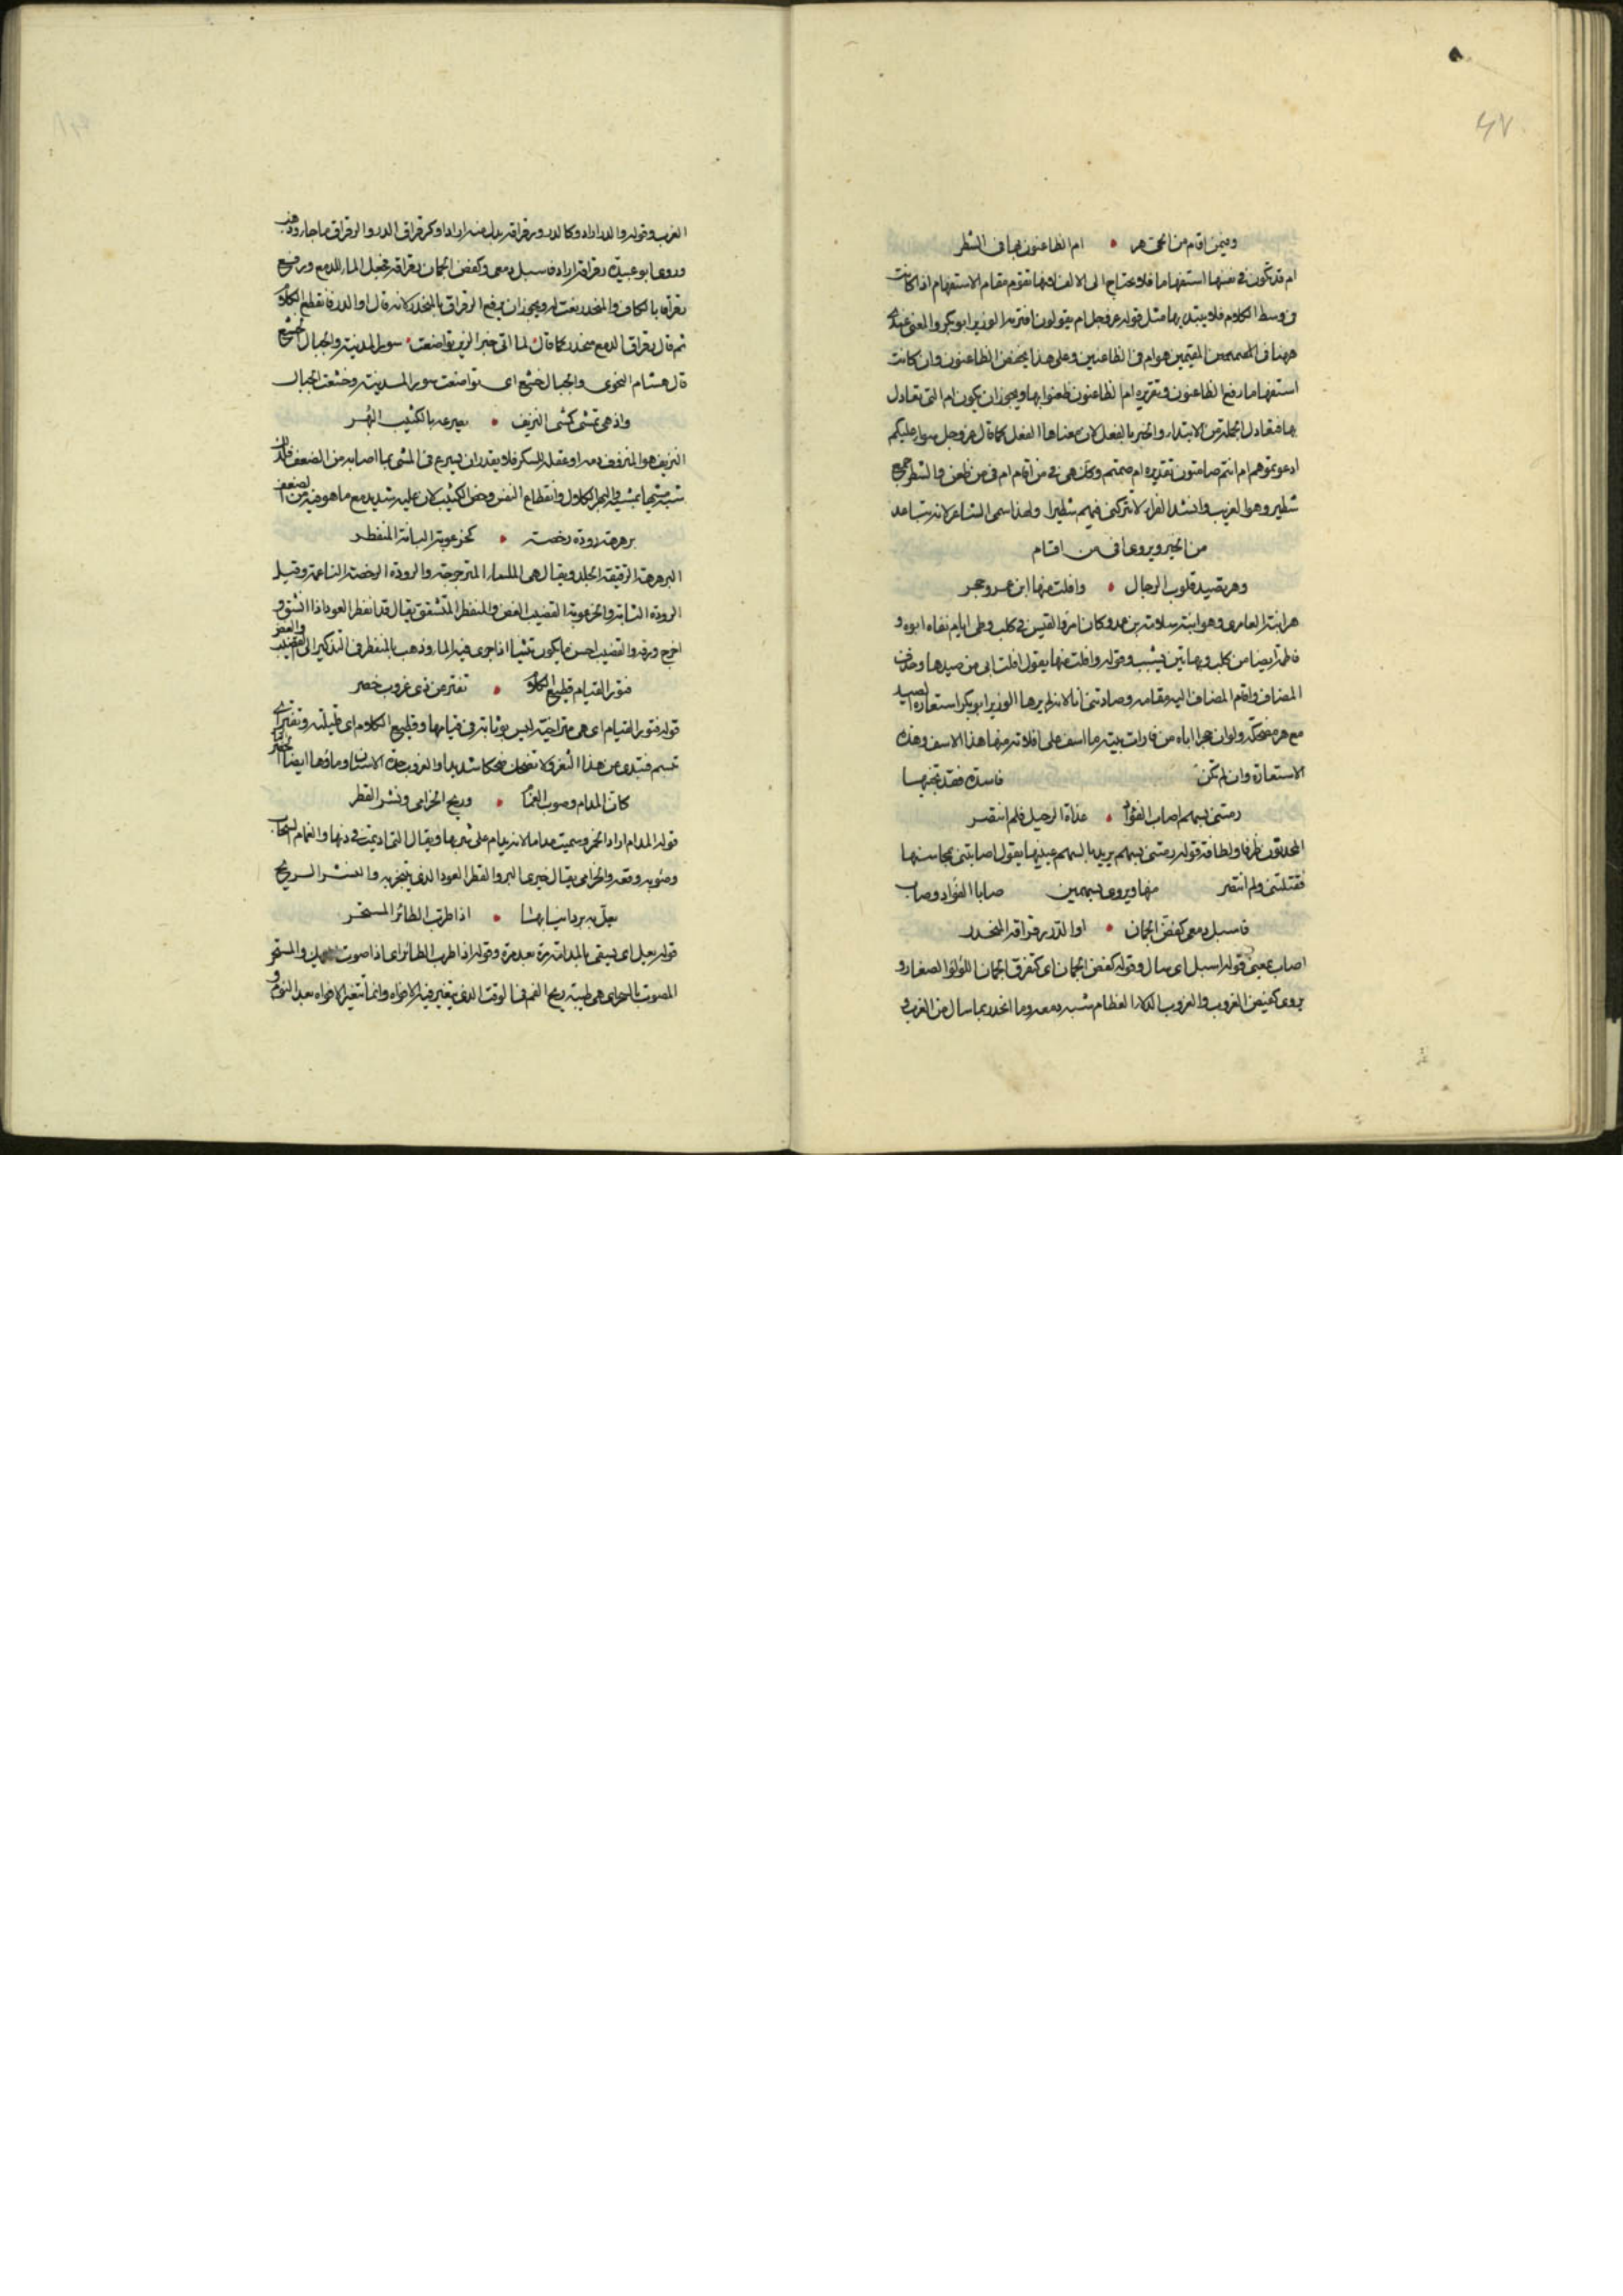 ٤٧
وفيمن اقام من الحى هر • ام الظاعنون بها فى الشطر
ام قد تكون فى نفسها استفهاما فلا تحتاج الى الالف لانها تقوم مقام الاستفهام اذا كانت
فى وسط الكلام فلا يبتدى بها مثل قوله عز وجل ام يقولون افتريه الوزير ابو بكر والمعنى عندى
المقيمين هوام فى الظاعنين وعلى هذا يخفض الظاعنون وان كانت
استفهاما رفع الظاعنون وتقديره ام الظاعنون ظعنوا بها ويجوز ان يكون ام التى تعادل
بها فتعادل الجملة من الابتداء والخبر بالفعل لان معناها الفعل كما قال عز وجل سواء عليكم
ادعوتموهم ام انتم صامتون تقديره ام صمتم وكان هى فى من اقام ام فى من ظعن والشطر جمع
شطير وهو الغريب وانشد الفراء لا تتركنى فيهم شطيرا ولهذا سمى الشاطر لانه يتباعد
من الخير ويروى افى من اقام
وهر تصيد قلوب الرجال • وافلت منها ابن عمرو حجر
هر ابنة العامرى وهو ابنة سلامة بن وكان امرؤ القيس فى كلب وطى ايام نفاه ابوه و
فاطمة ايضا من كلب وبهاتين يشبب وقوله وافلت منها يقول افلت ابى من صيدها وحذف
المضاف واقام المضاف اليه مقامه وصادتنى انا لانه لم يرها الوزير ابو بكر استعارة الصيد
مع هر مضحكة ولو ان حجرا اباه من فارات بيته ما اسف على افلاته منها هذا الاسف وهذه
الاستعارة وان لم تكن فاسدة فقد تجنبها
رمتنى بسهم اصاب الفؤاد • غداة الرحيل فلم انتصر
المحدثون ظرفا ولطافة قوله رمتنى بسهم يريد بالسهم عينيها يقول اصابتنى بمحاسنها
فقتلتنى ولم انتصر منها ويروى بسهمين صابا الفؤاد وصاب
فاسبل دمعى كفض الجمان • او الدر رقراقه المنحدر
اصاب بمعنى قوله اسبل اى سال وقوله كفض الجمان اى كتفرق الجمان اللؤلؤ الصغار و
يروى كفيض الغروب والغروب الدلاء العظام شبه دمعه وما انحدر بما سال من الغرب و
الغرب وقوله والدر اراد وكالدر ورقراقه بدل منه اراد او كرقراق الدر والرقراق ما جاء وذهب
وروى ابو عبيدة رقراقه اراد فاسبل دمعى وكفض الجمان رقراقه فجعل الهاء للدمع ويرفع
رقراقه بالكاف والمنحدر نعت له ويجوز ان يرفع الرقراق بالمنحدر كانه قال او الدر فانقطع الكلام
ثم قال رقراق الدمع منحدر كما قال لما اتى خبر الزبير تواضعت • سور المدينة والجبال الخشع
قال هشام النحوى والجبال خشع اى تواضعت سور المدينة وخشعت الجبال
واذ هى تمشى كمشى النزيف • يصرعه بالكثيب البُهر
النزيف هو المنزوف دمه او عقله بالسكر فلا يقدر ان يسرع فى المشى بما اصابه من الضعف فلذلك
شبه مشيها بمشيه والبهر الكلال وانقطاع النفس وخص الكثيب لان عليه شديد مع ما هو فيه من الضعف
برهرهة رودة رخصة • كخرعوبة البانة المنفطر
البرهرهة الرقيقة الجلد ويقال هى الملساء المترجرجة والرودة الرخصة الناعمة وقيل
الرودة الشابة والخرعوبة القضيب الغض والمنفطر المتشقق يقال قد انفطر العود اذا انشق و
اخرج ورقه والقضيب احسن ما يكون تثنيا اذا جرى فيه الماء وذهب بالمنفطر فى التذكير الى القضيب
والغصن
فتور القيام قطيع الكلام • تفتر عن ذى غروب خصر
قوله فتور القيام اى هى متراخية ليس بوثابة فى قيامها وقطيع الكلام اى قليلته وتفتر اى
تبسم فتبدى عن هذا الثغر ولا تضحك ضحكا شديدا والغروب حدة الاسنان وماؤها ايضا
كان المدام وصوب الغمام • وريح الخزامى ونشر القطر
قوله المدام اراد الخمر وسميت مداما لانه يدام على شربها ويقال التى اديمت فى دنها والغمام السحاب
وصوبه وقعه والخزامى يقال خيرى البر والقطر العود الذى يتبخر به والنشر الريح
يعل به برد انيابها • اذا طرب الطائر المستحر
قوله يعل اى يسقى بالمدامة مرة بعد مرة وقوله اذا طرب الطائر اى اذا صوت والمستحر
المصوت بالسحر اى هى طيبة ريح الفم فى الوقت الذى يتغير فيه الافواه وانما تتغير الافواه بعد النوم و